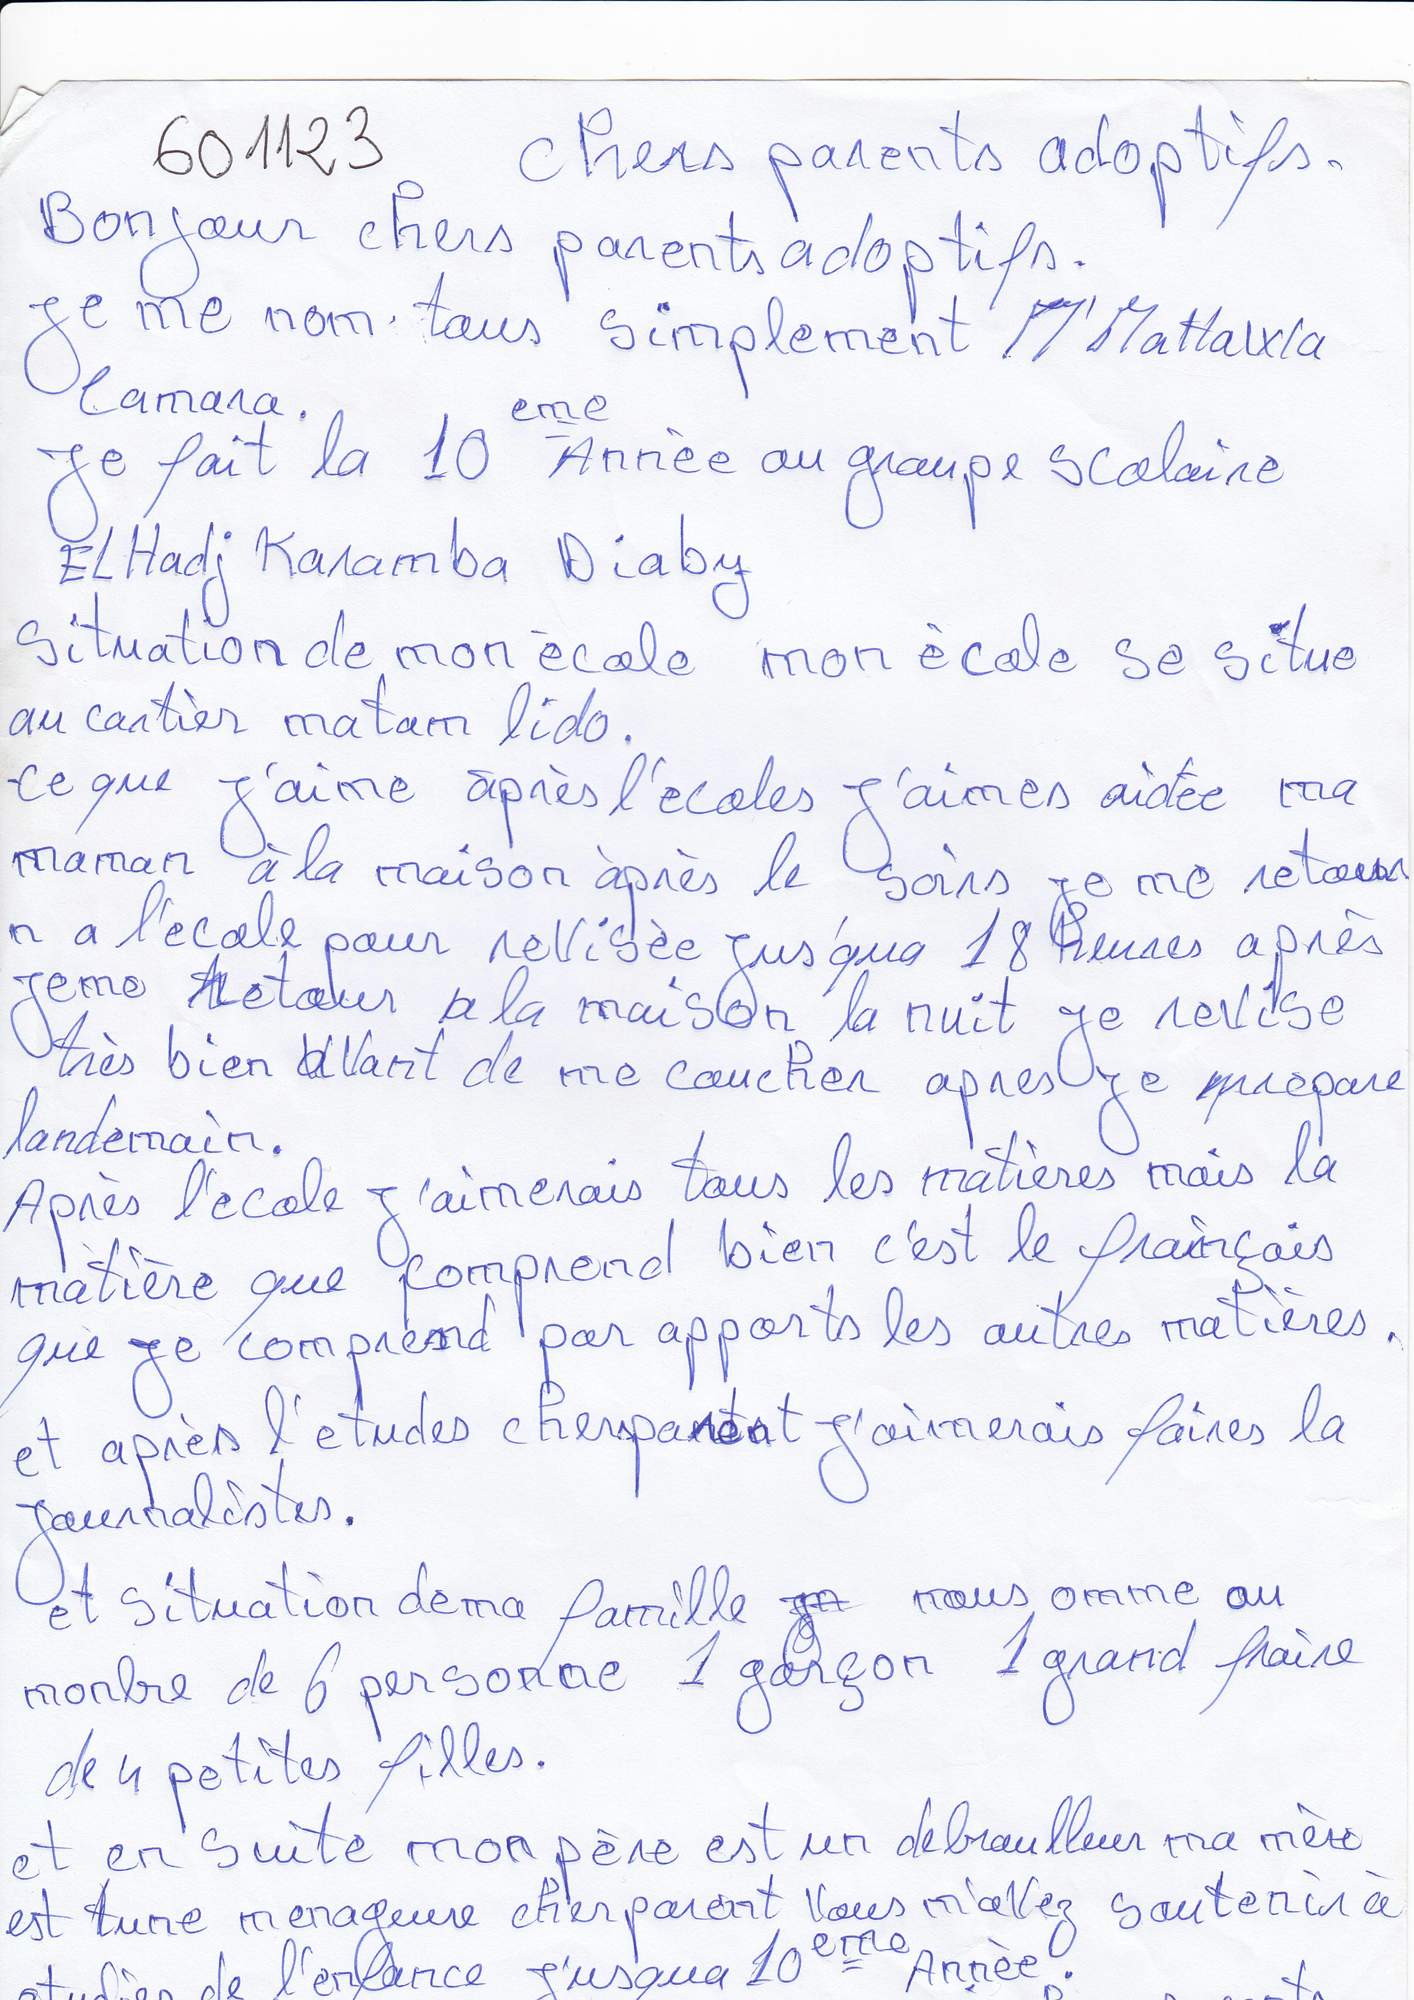 601123 chers parents adoptifs.
Bonjour chers parents adoptifs.
Je me nom tous simplement M'Mahawa
Camara.
Je fait la 10 eme Annèe au groupe scolaire
EL Hadj Karamba Diaby
Situation de mon ècole mon ècole se situe
au cartièr matam lido.
Ce que j'aime àprès l'ecoles j'aimes aidée ma
maman à la maison àprès le soirs je me retour
n a l'école pour revisèe jus'qua 18 heures après
jeme retour a la maison la nuit je revise
très bien avant de me coucher apres je prepare
landemain.
Après l'école j'aimerais tous les matières mais la
matière que comprend bien c'est le français
que je comprend par apports les autres matières.
et après l'etudes cherparent j'aimerais faires la
journalistes.
et situation dema famille nous omme au
monbre de 6 personne 1 garçon 1 grand fraire
de 4 petites filles.
et en suite mon père est un debraulleur ma mère
est tune menageure cherparent vous m'avez soutenir à
etudièr de l'enfance j'usqua 10 eme Annèe.